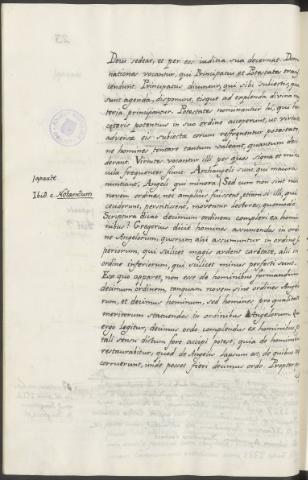 Deus sedeat, et per eos iudicia sua decernat. Domi
nationes vocantur, qui Principatus et Potestates trans
cendunt. Principatus dicuntur, qui sibi subiectis, quae
sunt agenda, disponunt, eisque ad explenda divina my
steria principantur. Potestates nominantur hi, qui hoc
ceteris potentius in suo ordine acceperunt, ut virtutes
adversae eis subiectae eorum refrenentur potestate,
ne homines tentare tantum valeant, quantum desi
derant. Virtutes vocantur illi per quos signa et mira
cula frequenter fiunt. Archangeli sunt qui maiora
nuntiant, Angeli qui minora.
Iaparte
Ibid. c. Notandum
Sed cum non sint nisi
novem ordines, nec amplius fuissent, etiamsi illi, qui
ceciderunt, perstitissent, moventur lectores, quomodo
Scriptura dicat decimum ordinem compleri ex homi
nibus? Gregorius dicit homines assumendos in ordi
ne Angelorum, quorum alii assumuntur in ordine su
periorum, qui scilicet magis ardent caritate, alii in
ordine inferiorum, qui scilicet minus perfecti sunt.
Ex quo apparet, non esse de hominibus formandum
decimum ordinem, tanquam novem sint ordines Angelo
rum, et decimus hominum, sed homines pro qualitate
meritorum statuendos in ordinibus Angelorum. Quod
ergo legitur, decimus ordo complendus ex hominibus, ex
tali sensu dictum fore accipi potest, quia de hominibus
restaurabitur, quod de Angelis lapsum est, de quibus tot
corruerunt, unde posset fieri decimus ordo. Propter